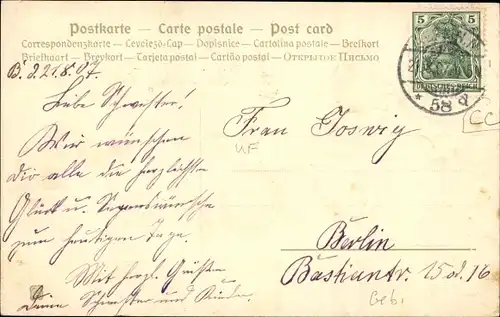 Postkarte – Carte postale – Post card
Correspondenzkarte – Levelező-Lap – Dopisnice – Cartolina postale – Brefkort
Briefkaart – Brevkort – Tarjeta postal – Cartão postal – Открытое Письмо
5 5
DEUTSCHES REICH
58
B. d. 21.8.07.
Liebe Schwester!
Wir wünschen
Dir alle die herzlichsten
Glück u. Segenswünsche
zum heutigen Tage.
Mit herzl. Grüßen
Deine Schwester und Kinder.
Frau Joswig
UF
CC
Berlin
Bastianstr. 15 od. 16
Geb.